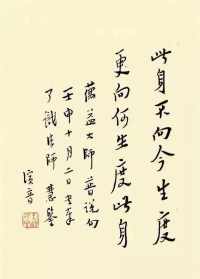 此身不向今生度
更向何生度此身
蕅益大师警训句
壬申十月二日書奉
了識法師 慧鑒
演音